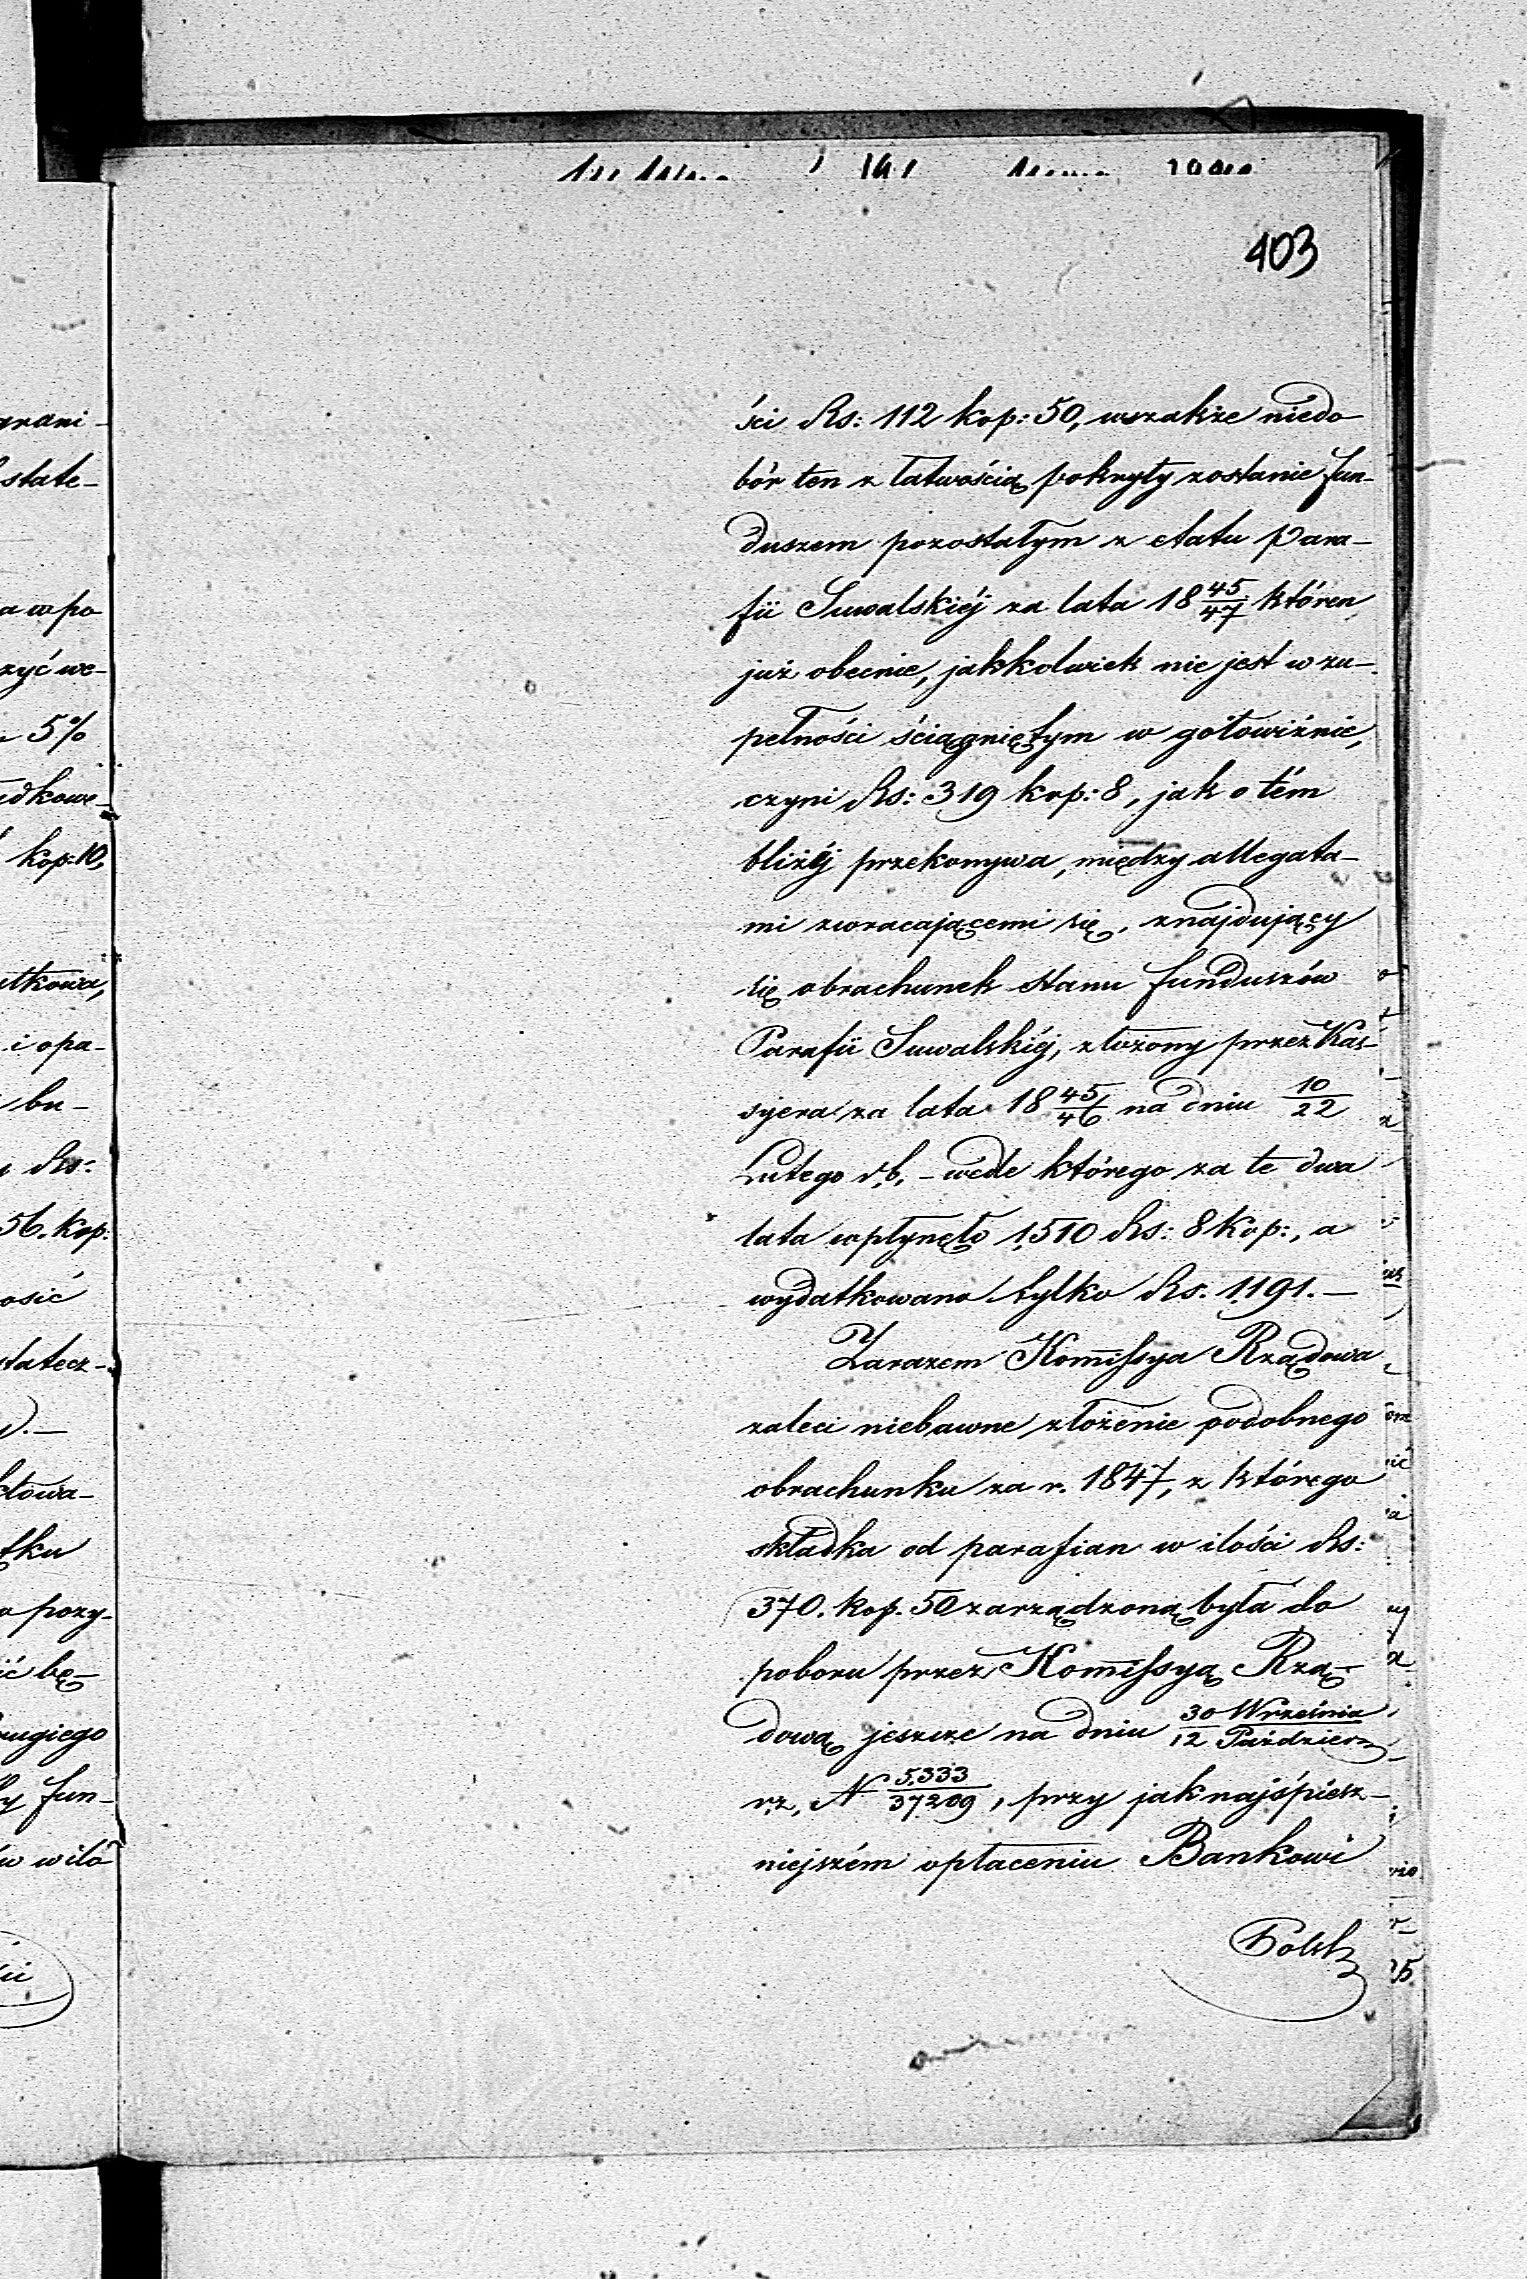 403
ści Rs: 112 kop: 50, wszakże niedo
bór ten z łatwością pokryty zostanie fun-
duszem pozostałym z etatu Para-
fii Suwalskiéj za lata 18 45/47 któren,
już obecnie, jakkolwiek nie jest w zu-
pełności ściągniętym w gotowiźnie,
czyni Rs: 319 kop: 8, jak o tém
bliżéj przekonywa, między allegata-
mi zwracającemi się, znajdujący
się obrachunek stanu funduszów
Parafii Suwalskiéj, złożony przez Kas-
syera za lata 18 45/46 na dniu 10/22
Lutego r.b. – wedle którego za te dwa
lata wpłynęło 1,510 Rs: 8 Kop:, a
wydatkowano tylko Rs. 1,191. –
Zarazem Komissya Rządowa
zaleci niebawne złożenie podobnego
obrachunku za r. 1847, z którego
składka od parafian w ilości Rs:
370. kop. 50 zarządzoną była do
poboru przez Komissyą Rzą-
dową jeszcze na dniu 30 Września/12 Paździer:
r.z, N 5,333/37,209, przy jak najśpiesz-
niejszém opłaceniu Bankowi
Polsk
grani-
state-
a w po
zyć we-
5%
adkowe-
kop: 10,
utkowa,
i opa-
bu-
Rs:
56. kop:
ość
statecz-
ctowa-
tku
pozy-
ić bę-
rugiego
fun-
w w ilo